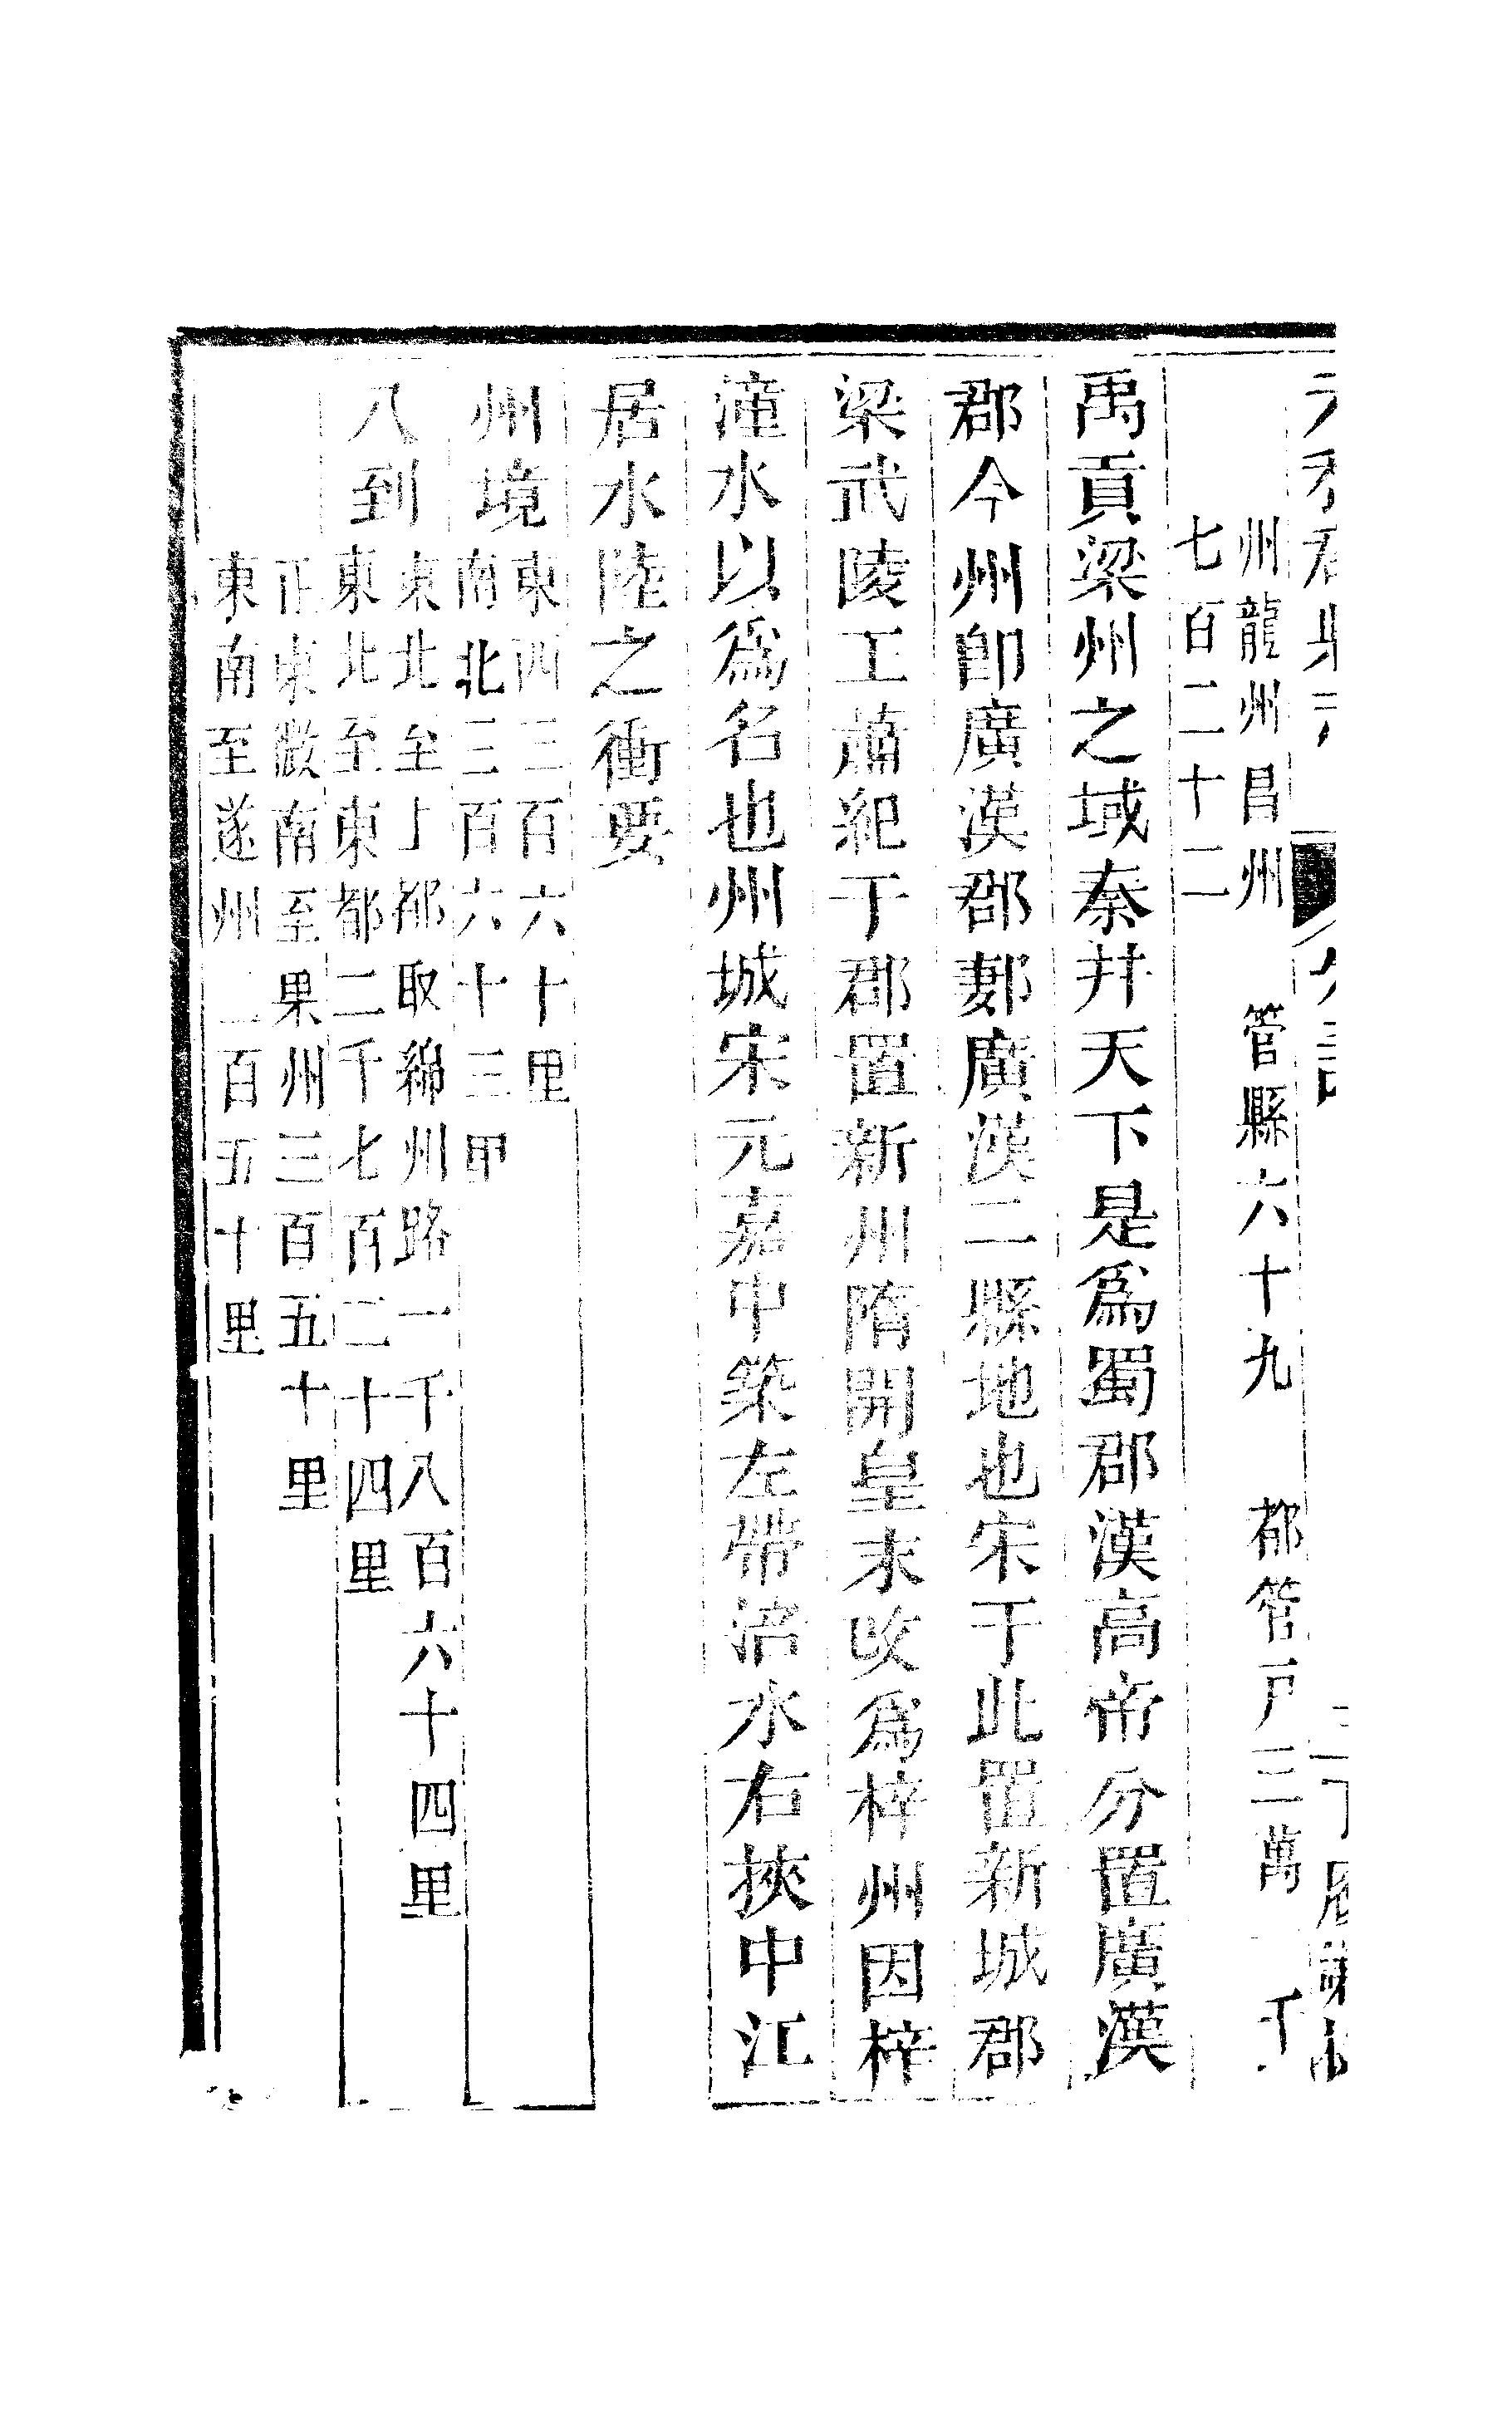 州龍州昌州　管縣六十九　都管戸三萬　千
七百二十二
禹貢梁州之域秦幷天下是爲蜀郡漢高帝分置廣漢
郡今州卽廣漢郡郪廣漢二縣地也宋于此置新城郡
梁武陵王蕭紀于郡置新州隋開皇末改爲梓州因梓
潼水以爲名也州城宋元嘉中築左帶涪水右挾中江
居水陸之衝要
州境
東西三百六十里
南北三百六十三里
八到
東北至上都取綿州路一千八百六十四里
東北至東都二千七百二十四里
正東微南至果州三百五十里
東南至遂州二百五十里